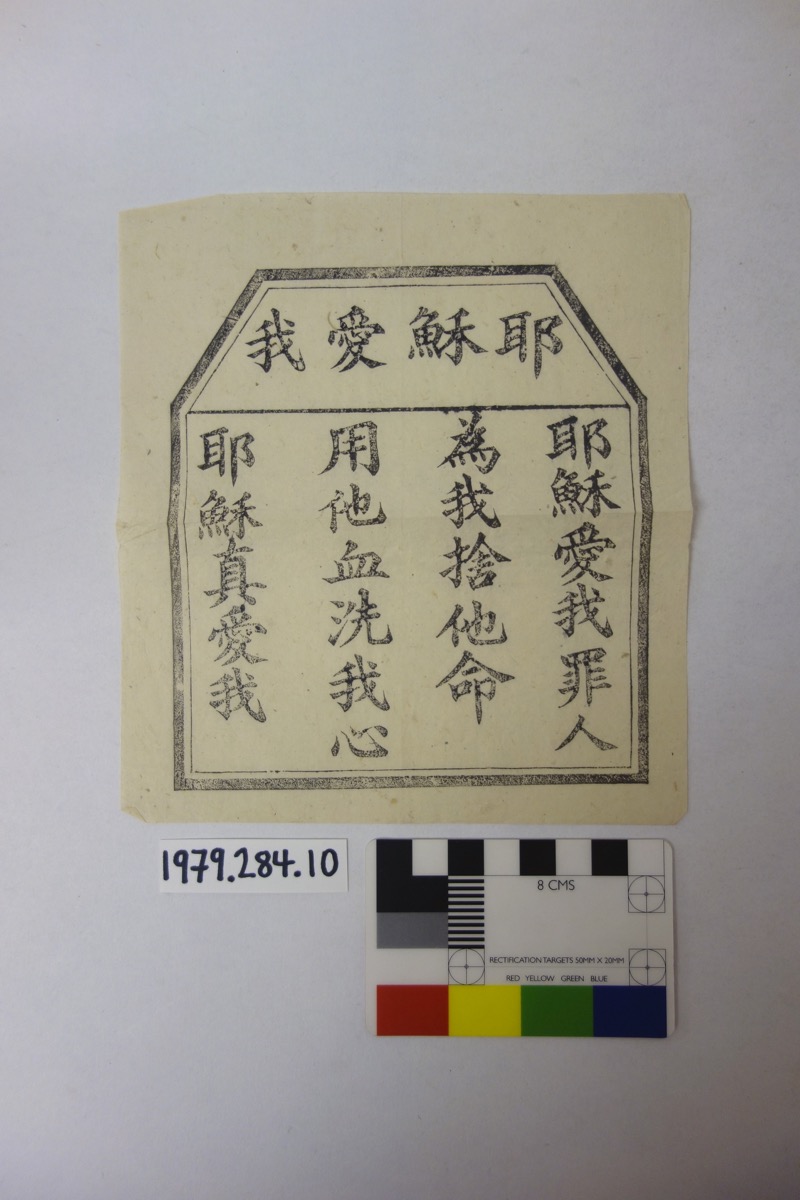 耶穌愛我
耶穌愛我罪人
為我捨他命
用他血洗我心
耶穌真愛我
1979.284.10
8 CMS
RECTIFICATION TARGETS 50MM X 20MM
RED YELLOW GREEN BLUE